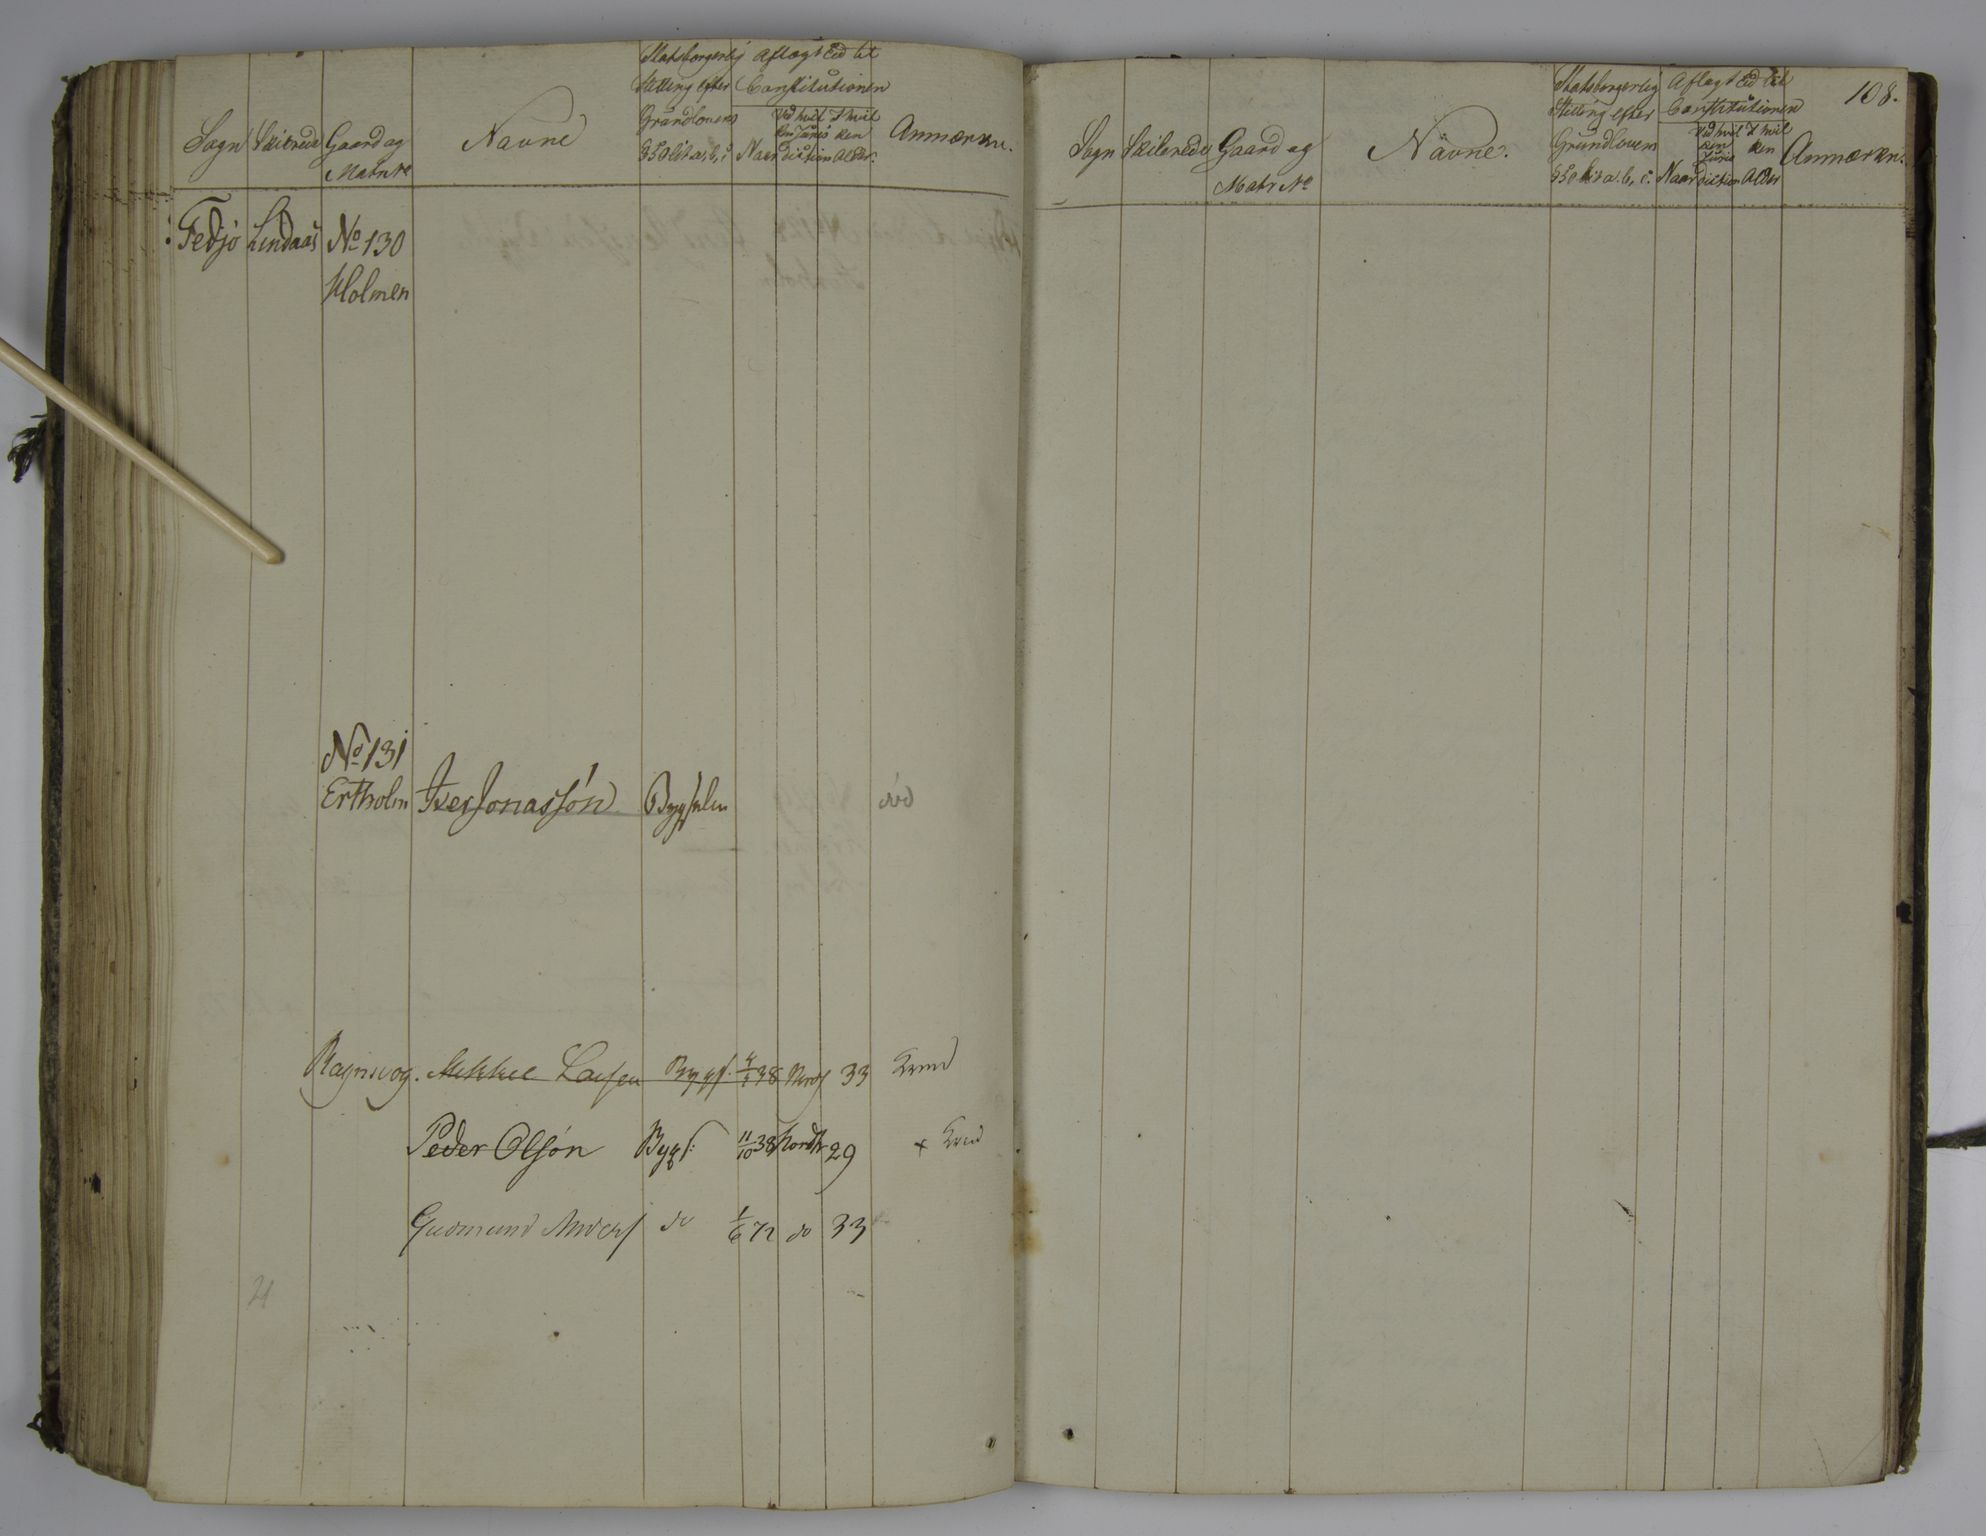 Sogn Skilrede Gaard og Matr No Navne Statsborgerlig Stilling efter Grundlovens § 50 lit a, b, c. Aflagt Ed til Constitutionen Naar Ved hvilken Jurisdiction I hvilken Alder. Anmærkn.
Fedjo Lindaas No 130
Holmen
No 131
Ertholm Iver Jonassøn Bygselm død
Rognevog. Mikkel Bygs. 38 Nordh 33
Peder Olsøn Bygs: 11/10 38 Nordh 29 +
Gudmund Anders do 1/6 72 do 33
21
Sogn Skilrede Gaard og Matr No Navne. Statsborgerlig Stilling efter Grundlovens § 50 lit a. b, c. Aflagt Ed til Constitutionen Naar Ved hvilken Jurisdiction I hvilken Alder Anmærkn: 108.